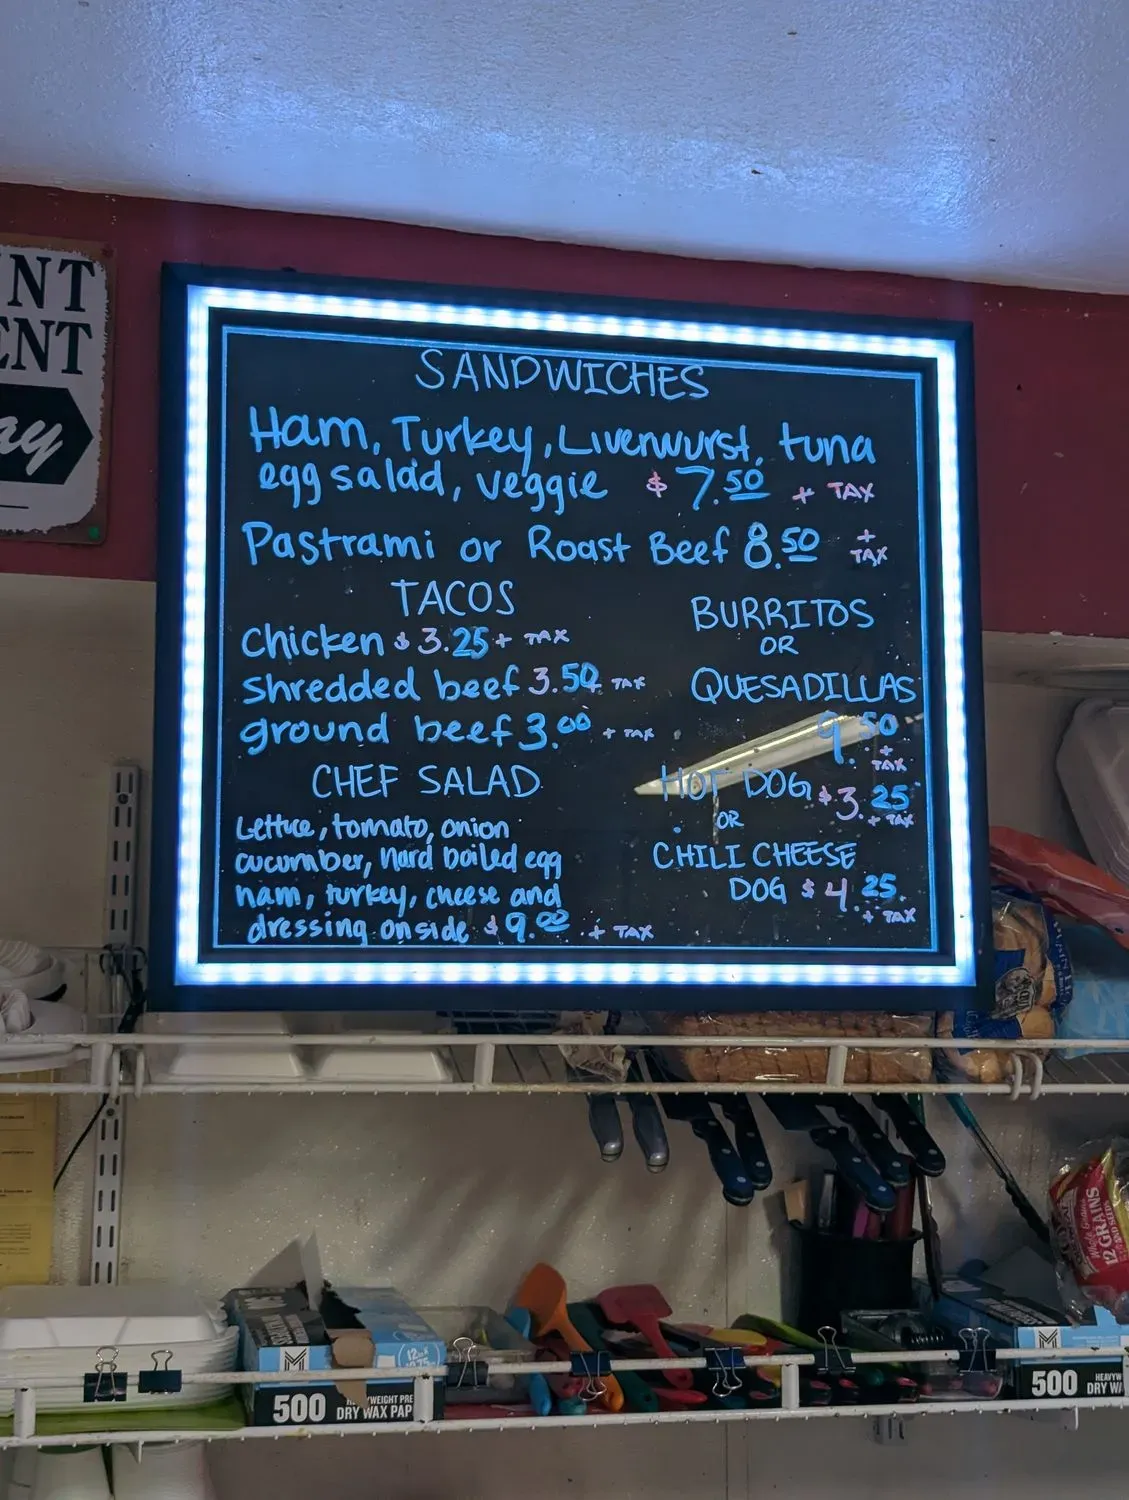 NT
ENT
ay
SANDWICHES
Ham, Turkey, Liverwurst, tuna
egg salad, veggie $7.50 + TAX
Pastrami or Roast Beef 8.50 + TAX
TACOS
Chicken $3.25 + TAX
shredded beef 3.50 + TAX
ground beef 3.00 + TAX
BURRITOS
OR
QUESADILLAS
9.50
+ TAX
CHEF SALAD
Lettuce, tomato, onion
cucumber, hard boiled egg
ham, turkey, cheese and
dressing on side $9.00 + TAX
HOT DOG $3.25
+ TAX
OR
CHILI CHEESE
DOG $4.25
+ TAX
12 GRAINS
AND SEEDS
500
DRY WAX PAP
500 HEAVYW
DRY WA